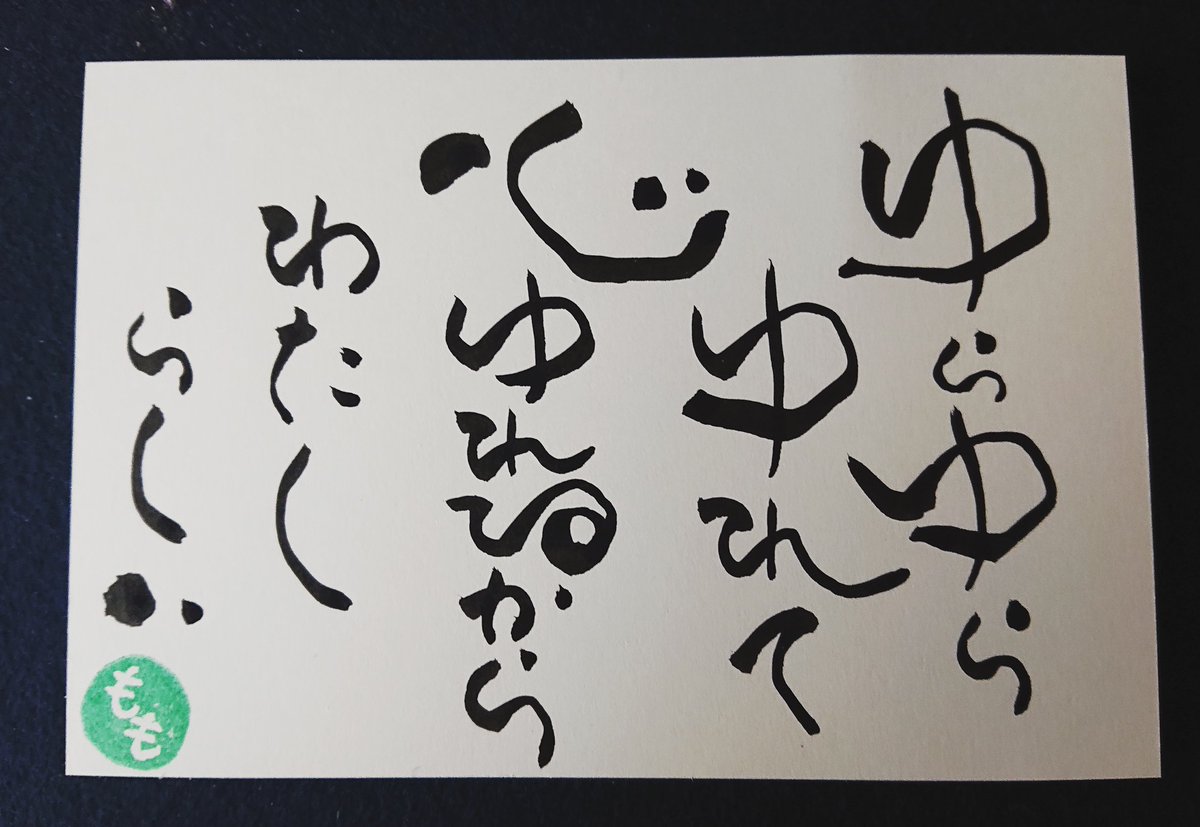 ゆらゆら
ゆれて
心ゆれるから
わたし
らしい
もも